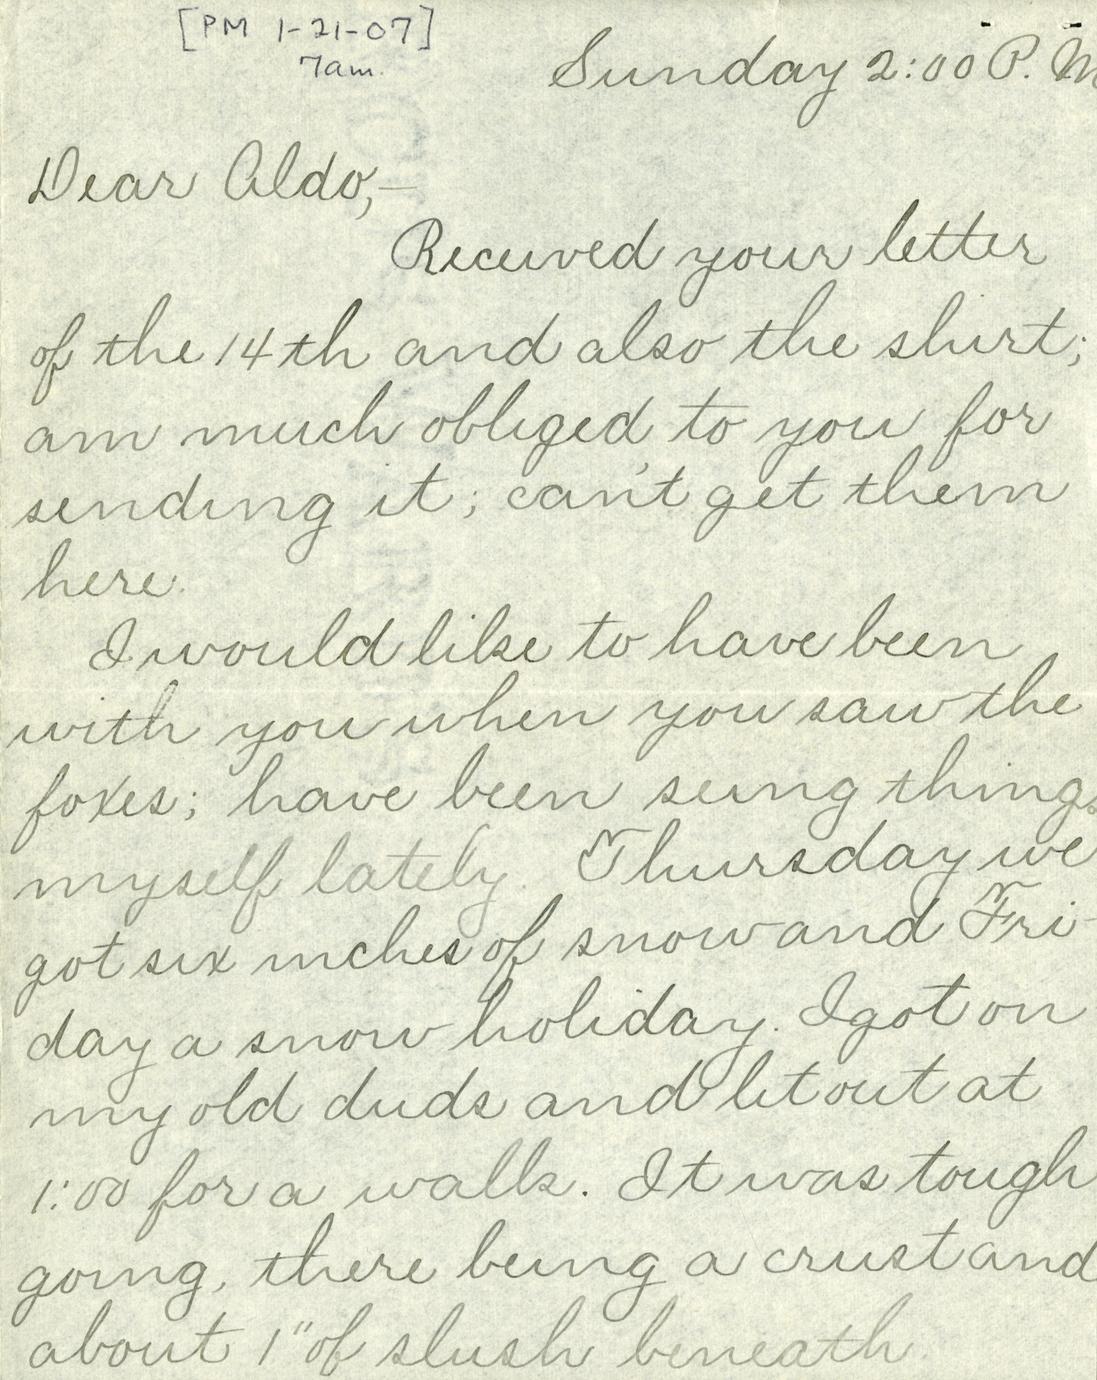 [PM 1-21-07]
7am.
Sunday 2:00 P. M
Dear Aldo,—
Received your letter
of the 14th and also the shirt;
am much obliged to you for
sending it; can't get them
here.
I would like to have been
with you when you saw the
foxes; have been seing things
myself lately. Thursday we
got six inches of snow and Fri-
day a snow holiday. I got on
my old duds and lit out at
1:00 for a walk. It was tough
going, there being a crust and
about 1" of slush beneath.